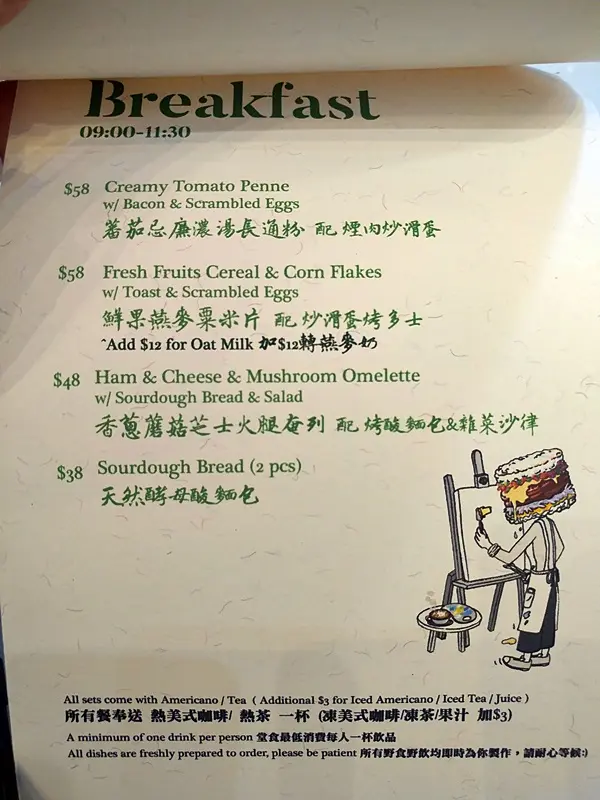 Breakfast
09:00-11:30
$58 Creamy Tomato Penne
w/ Bacon & Scrambled Eggs
蕃茄忌廉濃湯長通粉 配 煙肉炒滑蛋
$58 Fresh Fruits Cereal & Corn Flakes
w/ Toast & Scrambled Eggs
鮮果燕麥粟米片 配 炒滑蛋烤多士
^Add $12 for Oat Milk 加$12轉燕麥奶
$48 Ham & Cheese & Mushroom Omelette
w/ Sourdough Bread & Salad
香蔥蘑菇芝士火腿奄列 配 烤酸麵包&雜菜沙律
$38 Sourdough Bread (2 pcs)
天然酵母酸麵包
All sets come with Americano / Tea ( Additional $3 for Iced Americano / Iced Tea / Juice )
所有餐奉送 熱美式咖啡/ 熱茶 一杯 (凍美式咖啡/凍茶/果汁 加$3)
A minimum of one drink per person 堂食最低消費每人一杯飲品
All dishes are freshly prepared to order, please be patient 所有野食野飲均即時為你製作，請耐心等候:)